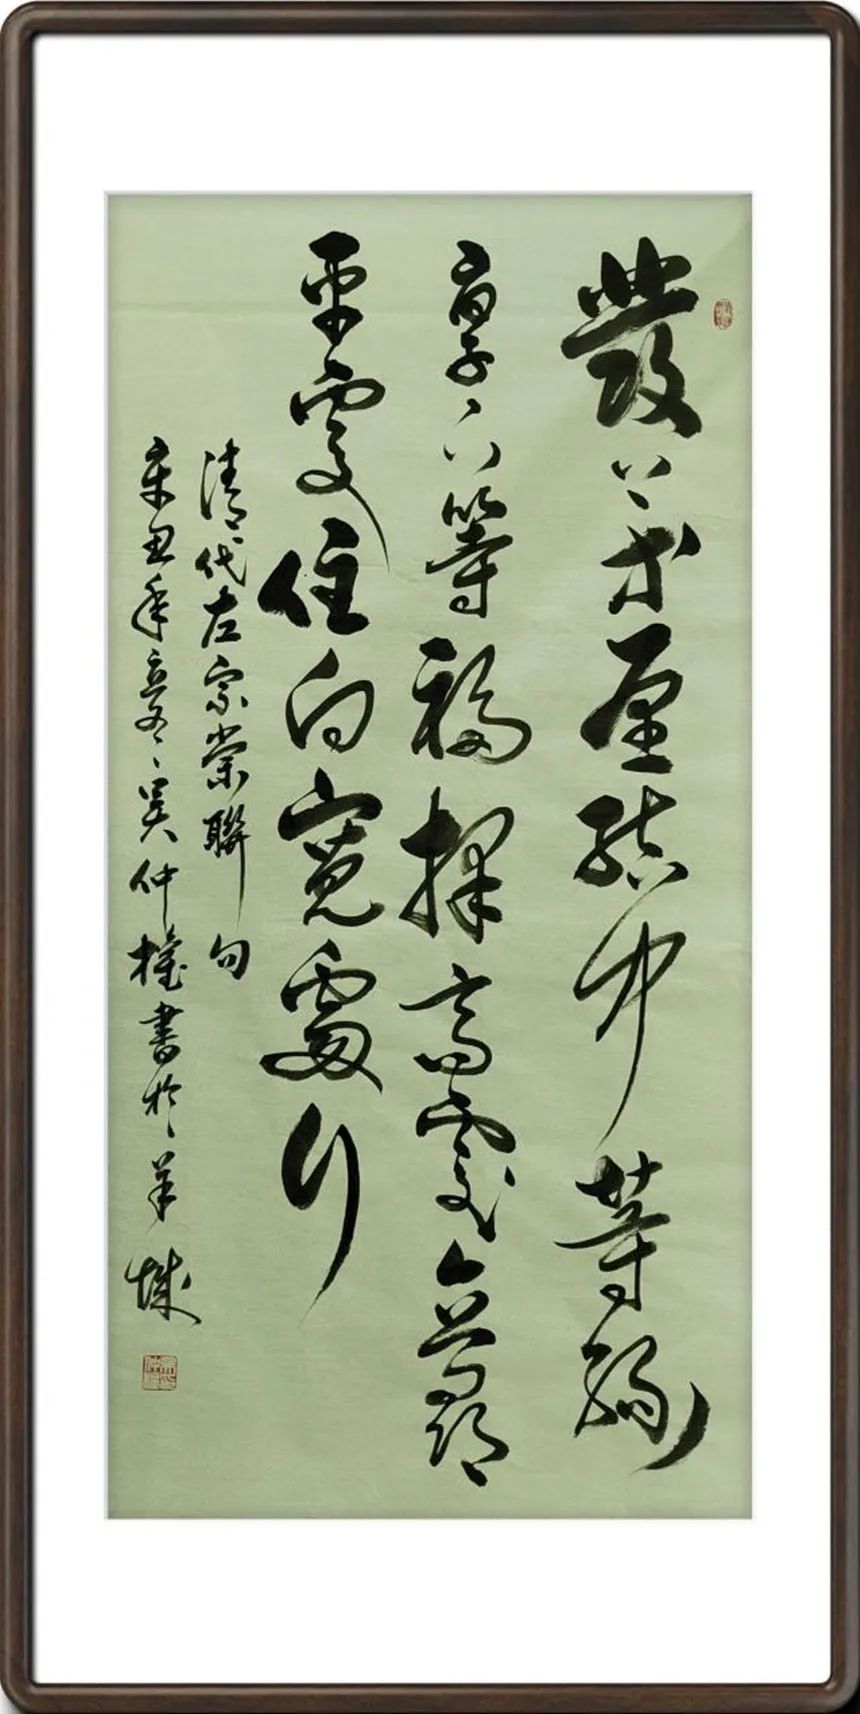 發上等愿結中等緣
享下等福擇高處立尋
平處住向寬處行
清代左宗棠聯句
辛丑年立冬吴仲權書於羊城